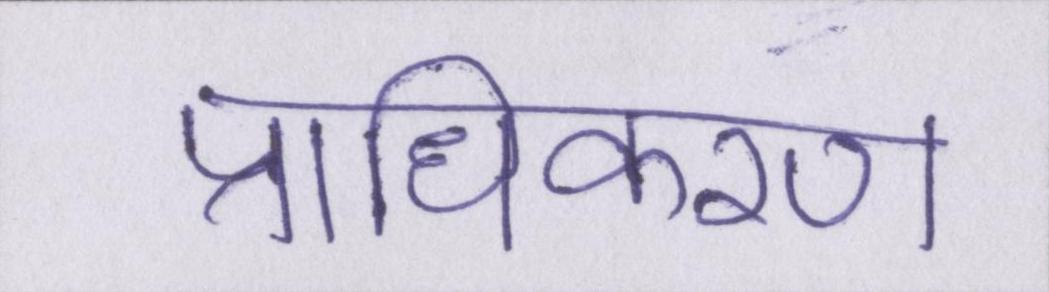 प्राधिकरण